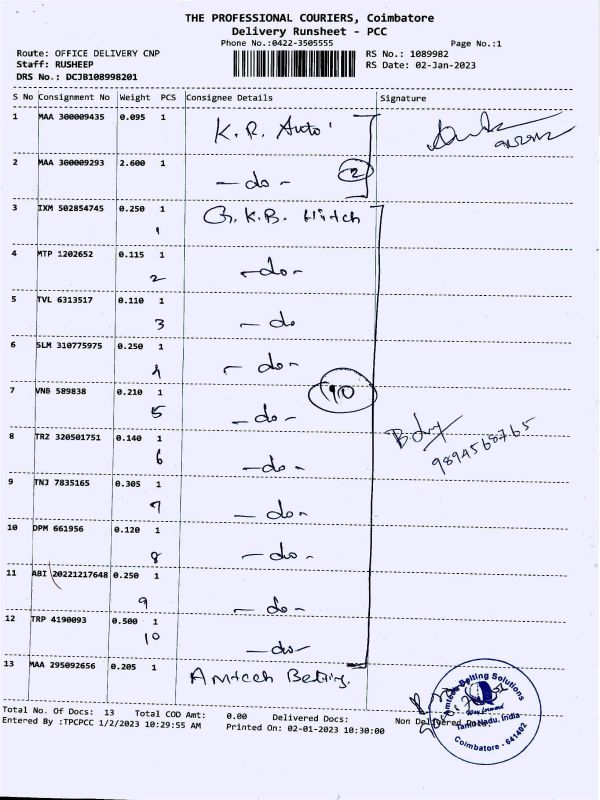 THE PROFESSIONAL COURIERS, Coimbatore
Delivery Runsheet - PCC
Phone No.:0422-3505555
Page No.:1
Route: OFFICE DELIVERY CNP
RS No.: 1089982
Staff: RUSHEEP
RS Date: 02-Jan-2023
DRS No.: DCJB108998201
S No Consignment No Weight PCS Consignee Details Signature
1 MAA 300009435 0.095 1 K.R. Auto
2 MAA 300009293 2.600 1 -do- 2
3 IXM 502854745 0.250 1 G.K.B. Hitech
1
4 MTP 1202652 0.115 1 -do-
2
5 TVL 6313517 0.110 1 -do
3
6 SLM 310775975 0.250 1 -do-
4
7 VNB 589838 0.210 1 -do- 10
5
8 TRZ 320501751 0.140 1 -do-
6
9894568765
9 TNJ 7835165 0.305 1 -do-
7
10 DPM 661956 0.120 1 -do-
8
11 ABI 20221217648 0.250 1 -do-
9
12 TRP 4190093 0.500 1 -do-
10
13 MAA 295092656 0.205 1 Amtech Belting
Amtech Belting Solutions
Tamil Nadu, India
Coimbatore - 641402
Total No. Of Docs: 13 Total COD Amt: 0.00 Delivered Docs: Non Delivered Docs:
Entered By :TPCPCC 1/2/2023 10:29:55 AM Printed On: 02-01-2023 10:30:00